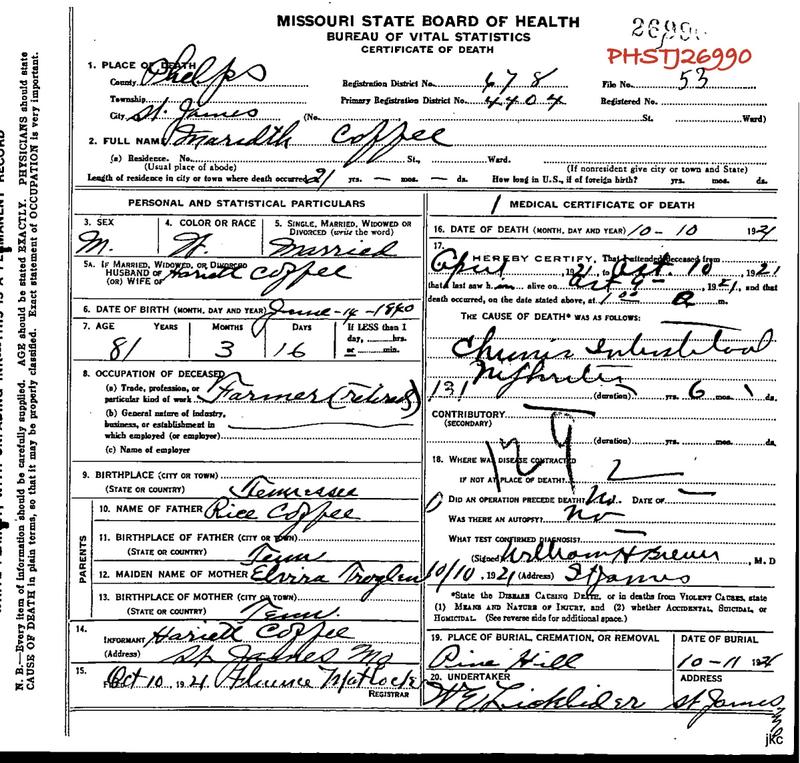 MISSOURI STATE BOARD OF HEALTH
BUREAU OF VITAL STATISTICS
CERTIFICATE OF DEATH
26990
PHSTJ26990
1. PLACE OF DEATH
County Phelps Registration District No. 678 File No. 53
Township Primary Registration District No. 4404 Registered No.
City St. James (No. St. Ward)
2. FULL NAME Maridth Coffee
(a) Residence. No. St., Ward.
(Usual place of abode) (If nonresident give city or town and State)
Length of residence in city or town where death occurred 21 yrs. — mos. — ds. How long in U.S., if of foreign birth? yrs. mos. ds.
PERSONAL AND STATISTICAL PARTICULARS
3. SEX
M.
4. COLOR OR RACE
W.
5. SINGLE, MARRIED, WIDOWED OR
DIVORCED (write the word)
Married
5A. IF MARRIED, WIDOWED, OR DIVORCED
HUSBAND OF Hariett Coffee
(OR) WIFE OF
6. DATE OF BIRTH (MONTH, DAY AND YEAR) June-14-1840
7. AGE YEARS MONTHS DAYS If LESS than 1
day, hrs.
or min.
81 3 16
8. OCCUPATION OF DECEASED
(a) Trade, profession, or
particular kind of work Farmer (retired)
(b) General nature of industry,
business, or establishment in
which employed (or employer)
(c) Name of employer
9. BIRTHPLACE (CITY OR TOWN)
(STATE OR COUNTRY) Tennessee
PARENTS
10. NAME OF FATHER Rice Coffee
11. BIRTHPLACE OF FATHER (CITY OR TOWN)
(STATE OR COUNTRY) Tenn
12. MAIDEN NAME OF MOTHER Elvira
13. BIRTHPLACE OF MOTHER (CITY OR TOWN)
(STATE OR COUNTRY) Tenn.
14.
INFORMANT Hariett Coffee
(Address) St James Mo
15.
Oct 10, 1921 Florence Matlock
REGISTRAR
MEDICAL CERTIFICATE OF DEATH
16. DATE OF DEATH (MONTH, DAY AND YEAR) 10-10 1921
17.
I HEREBY CERTIFY, That I attended deceased from
April, 1921, to Oct. 10, 1921
that I last saw h alive on Oct 9, 1921, and that
death occurred, on the date stated above, at 1 00 a m.
THE CAUSE OF DEATH* WAS AS FOLLOWS:
Chronic Interstitial
Nephritis
131 (duration) yrs. 6 mos. ds.
CONTRIBUTORY
(SECONDARY)
(duration) yrs. mos. ds.
18. WHERE WAS DISEASE CONTRACTED
IF NOT AT PLACE OF DEATH?
DID AN OPERATION PRECEDE DEATH? No. DATE OF —
WAS THERE AN AUTOPSY? No
WHAT TEST CONFIRMED DIAGNOSIS? —
(Signed) William H Brewer, M.D
10/10, 1921 (Address) St James
*State the DISEASE CAUSING DEATH, or in deaths from VIOLENT CAUSES, state
(1) MEANS AND NATURE OF INJURY, and (2) whether ACCIDENTAL, SUICIDAL, or
HOMICIDAL. (See reverse side for additional space.)
19. PLACE OF BURIAL, CREMATION, OR REMOVAL DATE OF BURIAL
Pine Hill 10-11 1921
20. UNDERTAKER ADDRESS
W E Licklider St James
Mo
jkc
N. B.—Every item of information should be carefully supplied. AGE should be stated EXACTLY. PHYSICIANS should state
CAUSE OF DEATH in plain terms, so that it may be properly classified. Exact statement of OCCUPATION is very important.